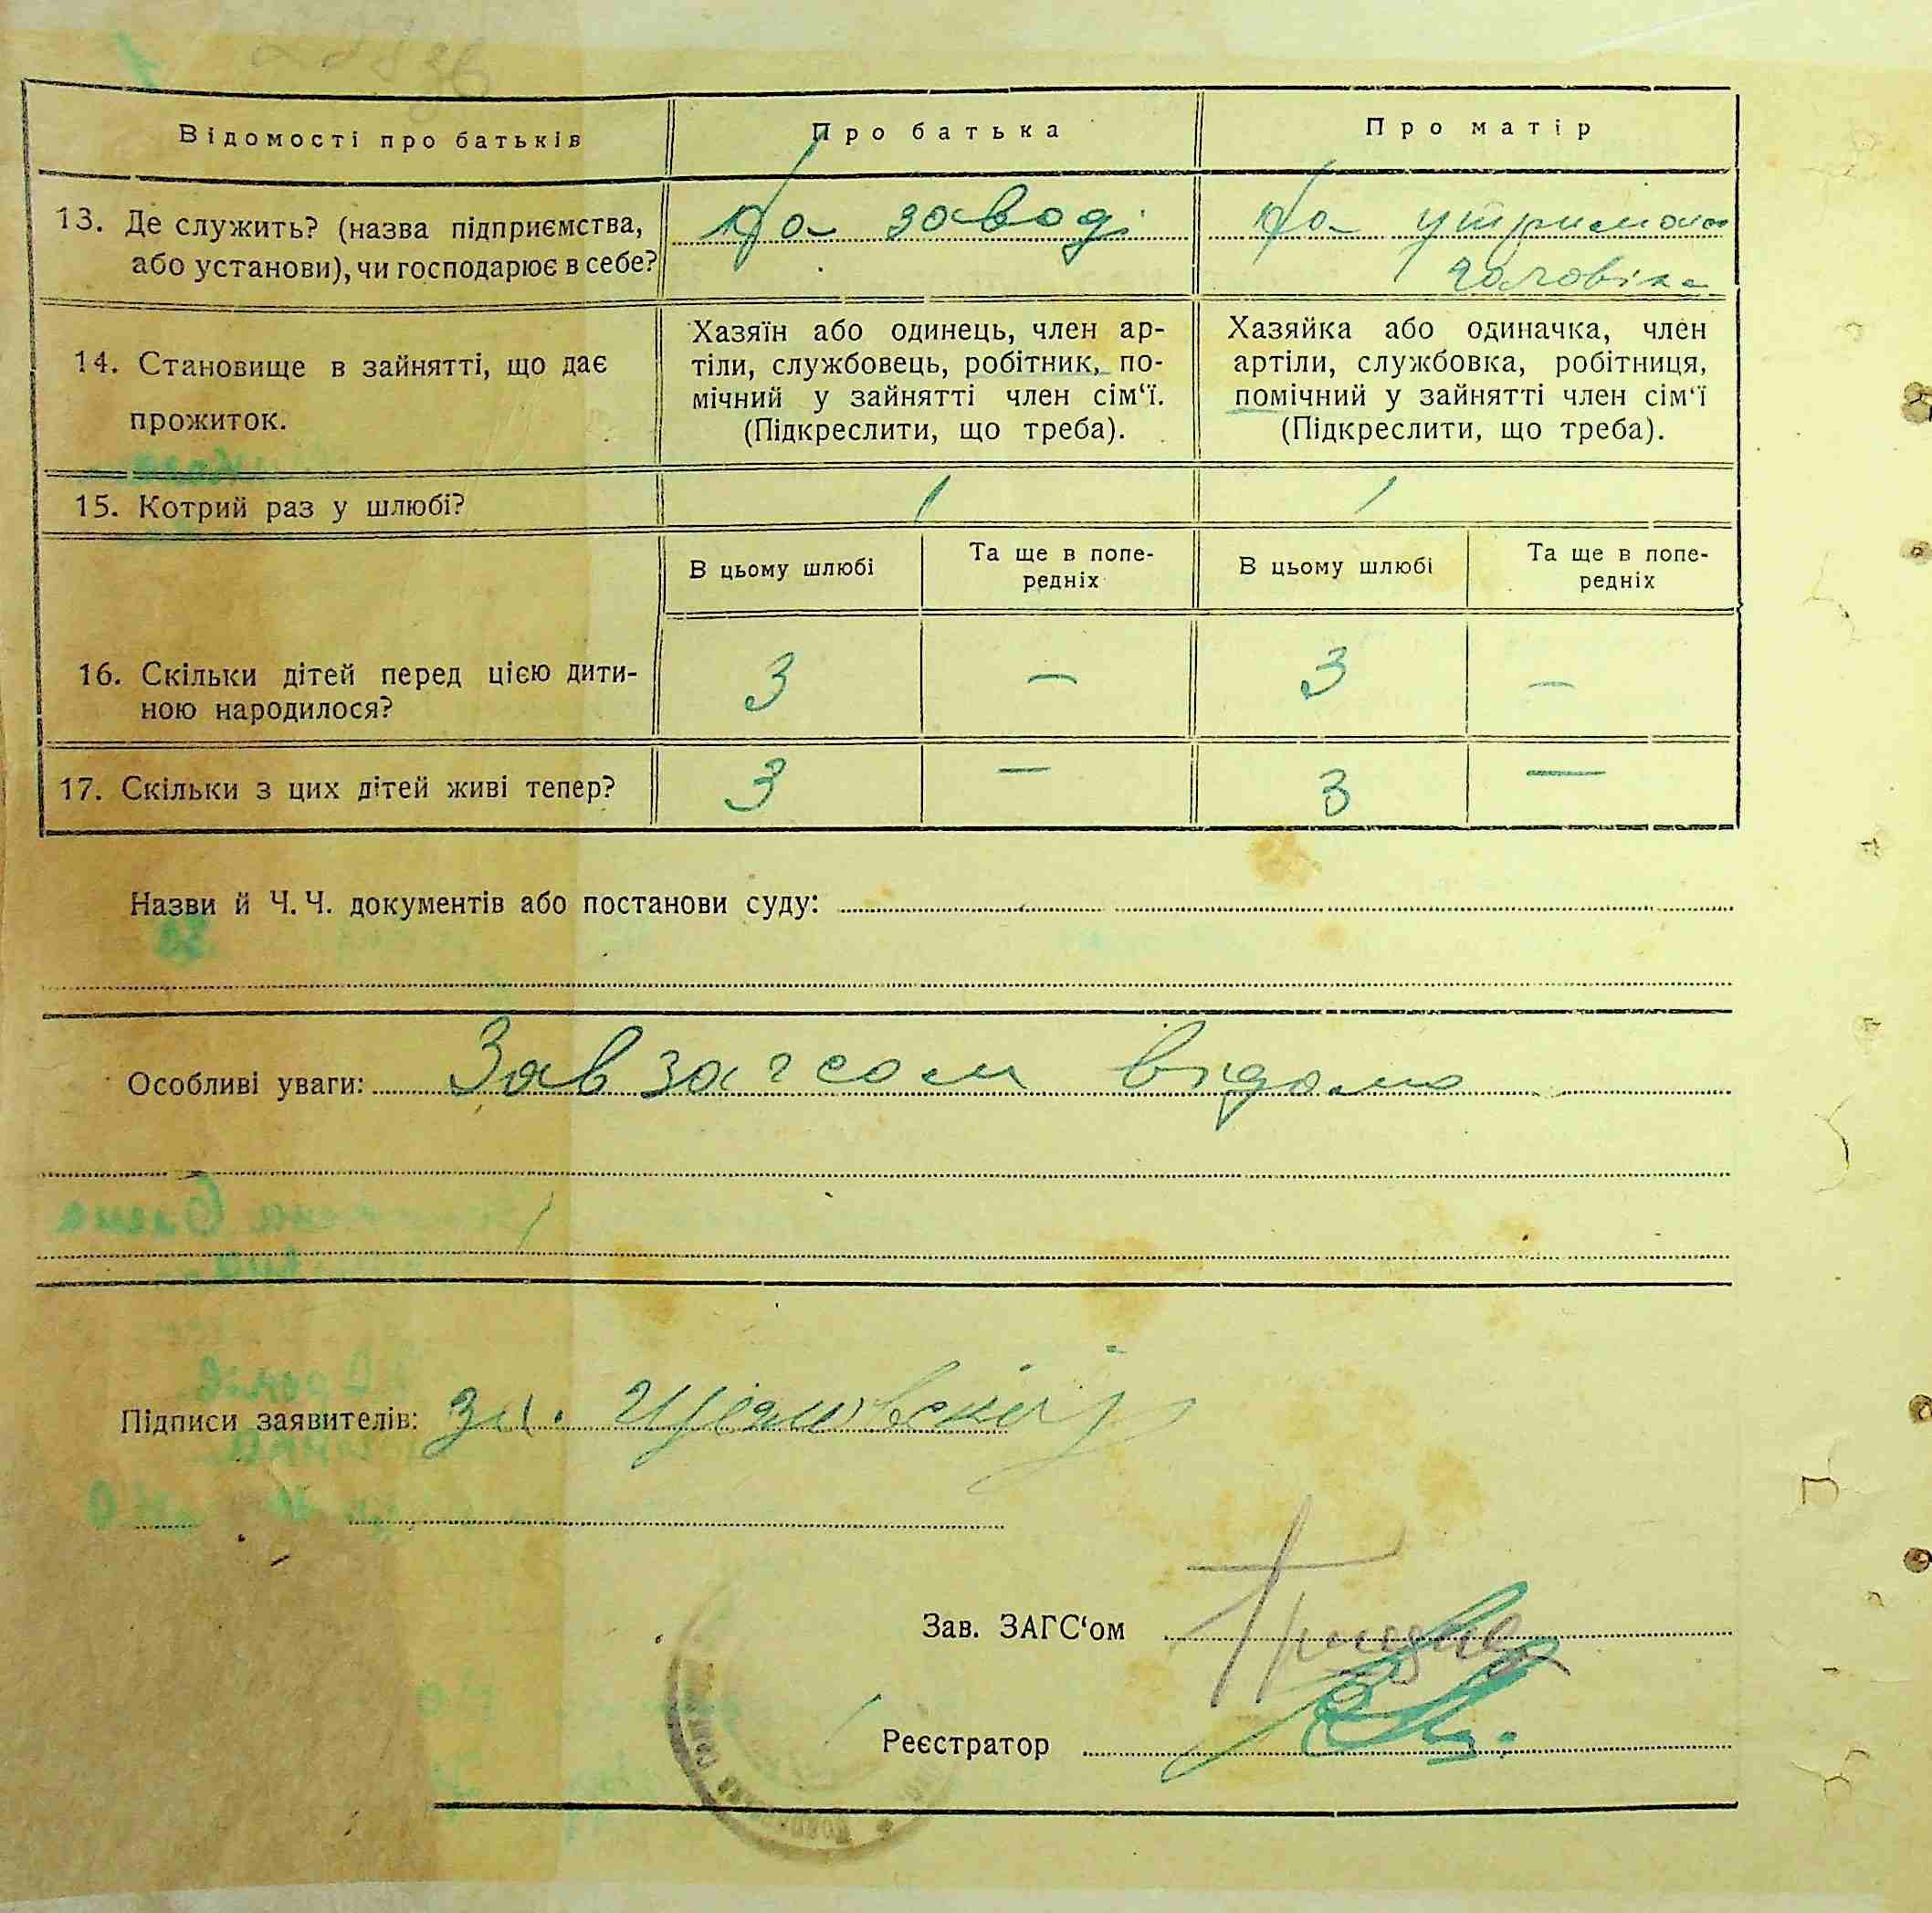 Відомості про батьків
Про батька
Про матір
13. Де служить? (назва підприємства, або установи), чи господарює в себе?
На заводі
На утриман
чоловіка
14. Становище в зайнятті, що дає прожиток.
Хазяїн або одинець, член ар-
тіли, службовець, робітник, по-
мічний у зайнятті член сім‘ї.
(Підкреслити, що треба).
Хазяйка або одиначка, член
артіли, службовка, робітниця,
помічний у зайнятті член сім‘ї
(Підкреслити, що треба).
15. Котрий раз у шлюбі?
1
1
В цьому шлюбі
Та ще в попе-
редніх
В цьому шлюбі
Та ще в попе-
редніх
16. Скільки дітей перед цією дити-
ною народилося?
3
—
3
—
17. Скільки з цих дітей живі тепер?
3
—
3
—
Назви й Ч. Ч. документів або постанови суду:
Особливі уваги: Завзагсом відомо
Підписи заявителів:
Зав. ЗАГС‘ом
Реєстратор